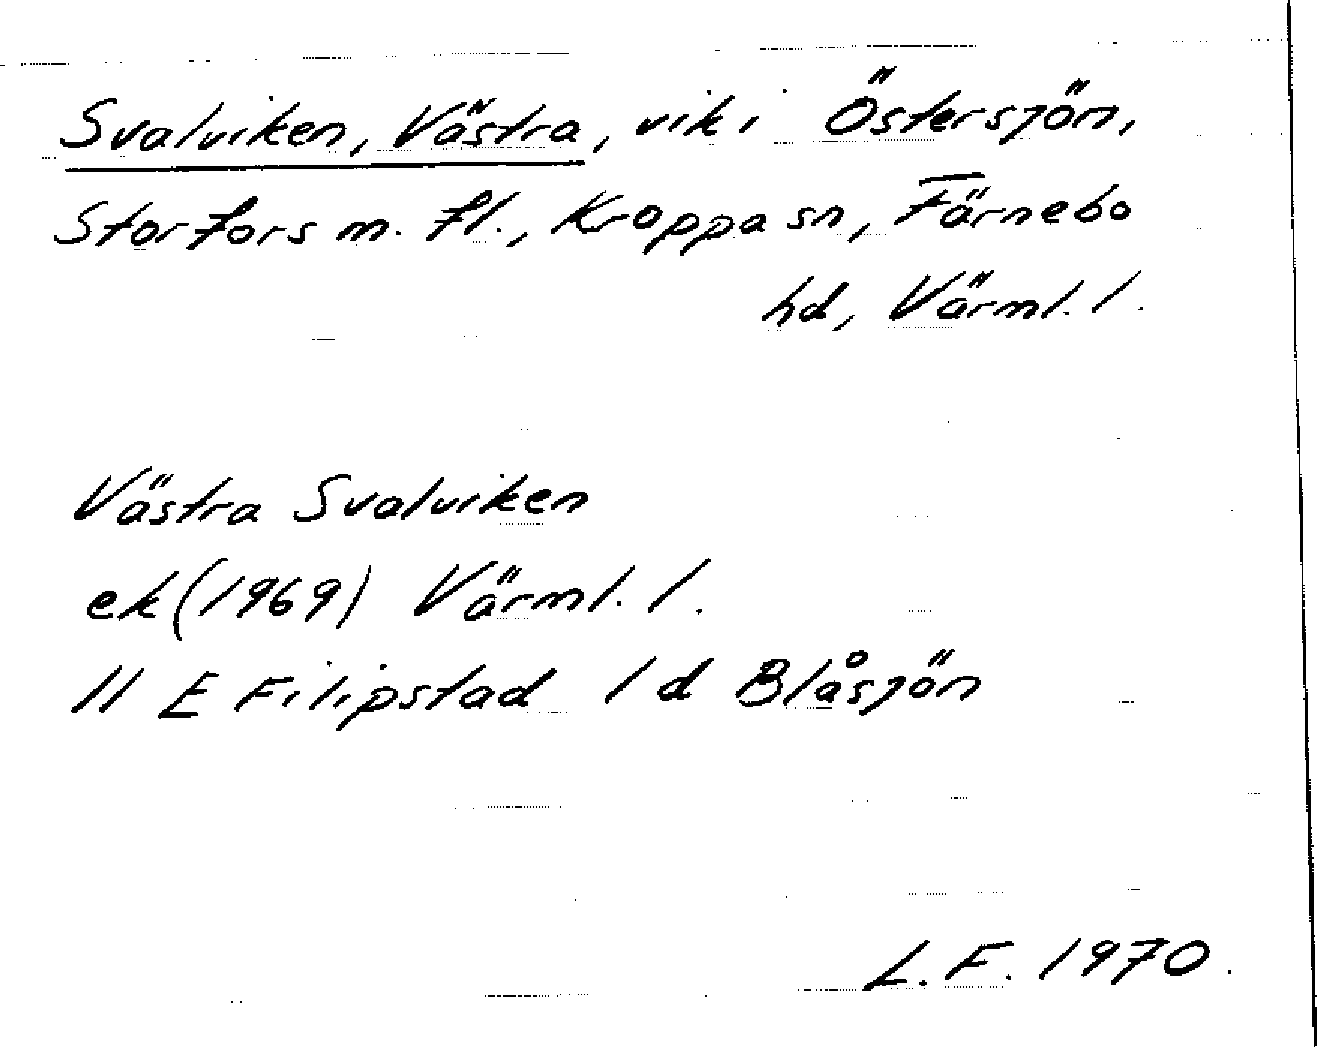 Svalviken, Västra, vik i Östersjön,
Storfors m. fl., Kroppa sn, Färnebo
hd, Värml. l.
Västra Svalviken
ek (1969) Värml. l.
11 E Filipstad 1 d Blåsjön
L. F. 1970.